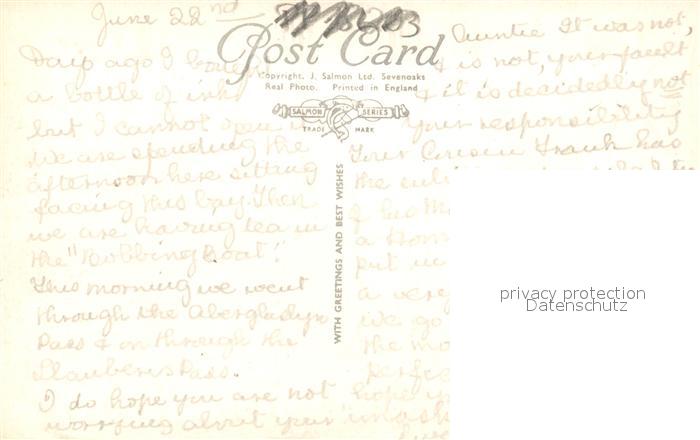 June 22nd
Days ago I
a bottle of ink
but I cannot open it
We are spending the
afternoon here sitting
facing this bay. Then
we are having tea in
the "Bobbing Boat".
This morning we went
through the Aberglaslyn
Pass & on through the
Llanberis Pass.
I do hope you are not
worrying about your "imag
Post Card
Copyright. J. Salmon Ltd. Sevenoaks
Real Photo. Printed in England
SALMON SERIES
TRADE MARK
WITH GREETINGS AND BEST WISHES
Auntie It was not,
& is not, your fault
& it is decidedly not
your responsibility
Your Cousin Frank has
the
of his
a
put in
a very
we go
the mo
perfe
hope y
privacy protection
Datenschutz